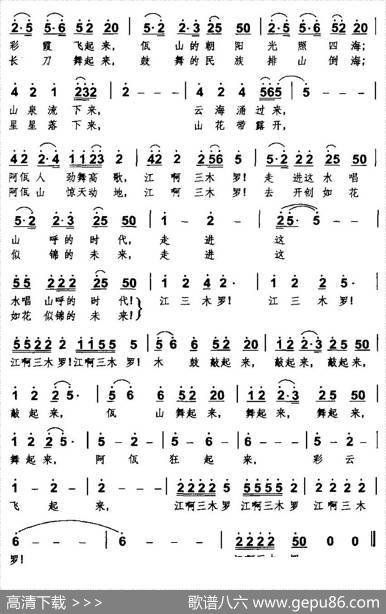 2·5 5·6 52 20 | 5·2 22 25 50 | 52 2·3 25 50
彩霞飞起来，佤山的朝阳光照四海；
长刀舞起来，鼓舞的民族排山倒海；
4 2 1 232 | 2 - - - | 4 2 4 565 | 5 - - -
山泉流下来，云海涌过来，
星星落下来，山花带露开，
阿佤人劲舞高歌，江啊三木罗！走进这水唱
阿佤山惊天动地，江啊三木罗！去开创如花
5·2 2·3 25 50 | 1 - 2 - | 25· 5 - |
山呼的时代，走进这
似锦的未来，走进这
55 222 25 50 | 12 42· | 1 2 2· |
水唱山呼的时代！江三木罗！江三木罗！
如花似锦的未来！
5522 2 2 | 1155 5 5 | 5 66 52 20 | 12 2·3 25 50 |
江啊三木罗！江啊三木罗！木鼓敲起来，敲起来，敲起来，
1 2 25· | 5 66 52 20 | 12 2·3 25 50 |
敲起来，佤山舞起来，舞起来，舞起来，
1 2 25· | 5 - - - | 5 - 6 - | 6 - - - | 5 - 6 - |
舞起来，阿佤狂起来，彩云
1 - 2 - | 2 - - - | 2222 52 5 | 2222 52 5 | 2222 5 5 |
飞起来，江啊三木罗江啊三木罗江啊三木
6 - - - | 6 - - - | 2222 200 | 0 0 0 0 ‖
罗！江啊三木
高清下载 >>>
歌谱八六 www.gepu86.com